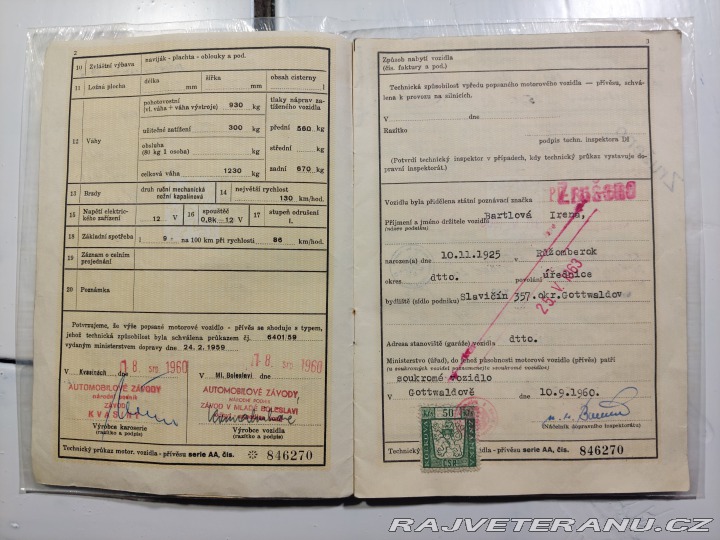 2
10 Zvláštní výbava naviják - plachta - oblouky a pod.
11 Ložná plocha délka mm šířka mm obsah cisterny l
12 Váhy
pohotovostní (vl. váha + váha výstroje) 930 kg
užitečné zatížení 300 kg
obsluha (80 kg 1 osoba) kg
celková váha 1230 kg
tlaky náprav zatíženého vozidla
přední 560 kg
střední kg
zadní 670 kg
13 Brzdy druh ruční mechanická nožní kapalinová 14 největší rychlost 130 km/hod.
15 Napětí elektrického zařízení 12 V 16 spouštěče 0,8k 12 V 17 stupeň odrušení I.
18 Základní spotřeba l 9 na 100 km při rychlosti 86 km/hod.
19 Záznam o celním projednání
20 Poznámka
Potvrzujeme, že výše popsané motorové vozidlo - přívěs se shoduje s typem,
jehož technická způsobilost byla schválena průkazem čj. 6401/59
vydaným ministerstvem dopravy dne 24. 2. 1959
V Kvasinách dne 18. srp 1960
V Ml. Boleslavi dne 18. srp 1960
AUTOMOBILOVÉ ZÁVODY
národní podnik
ZÁVOD
KVASINY
AUTOMOBILOVÉ ZÁVODY,
NÁRODNÍ PODNIK
ZÁVOD V MLADÉ BOLESLAVI
Výrobce karoserie
(razítko a podpis)
Výrobce vozidla
(razítko a podpis)
Technický průkaz motor. vozidla - přívěsu serie AA, čís. 846270
3
Způsob nabytí vozidla
(čís. faktury a pod.)
Technická způsobilost vpředu popsaného motorového vozidla — přívěsu, schválena k provozu na silnicích.
V dne
Razítko
podpis techn. inspektora DI
(Potvrdí technický inspektor v případech, kdy technický průkaz vystavuje dopravní inspektorát.)
Vozidlu byla přidělena státní poznávací značka
Zrušeno
Příjmení a jméno držitele vozidla Bartlová Irena,
(název podniku)
narozen(a) dne 10.11.1925 v Růžomberok
okres dtto. povolání úřednice
bydliště (sídlo podniku) Slavičín 357.okr.Gottwaldov
25. V. 1963
Adresa stanoviště (garáže) vozidla dtto.
Ministerstvo (úřad), do jehož působnosti motorové vozidlo (přívěs) patří
(u soukromých vozidel poznamenejte soukromé vozidlo)
soukromé vozidlo
V Gottwaldově dne 10.9.1960.
(Náčelník dopravního inspektorátu)
Kčs 50 Kčs
KOLKOVÁ
ZNÁMKA
ČSR
Technický průkaz motor. vozidla - přívěsu serie AA, čís. 846270
RAJVETERANU.CZ